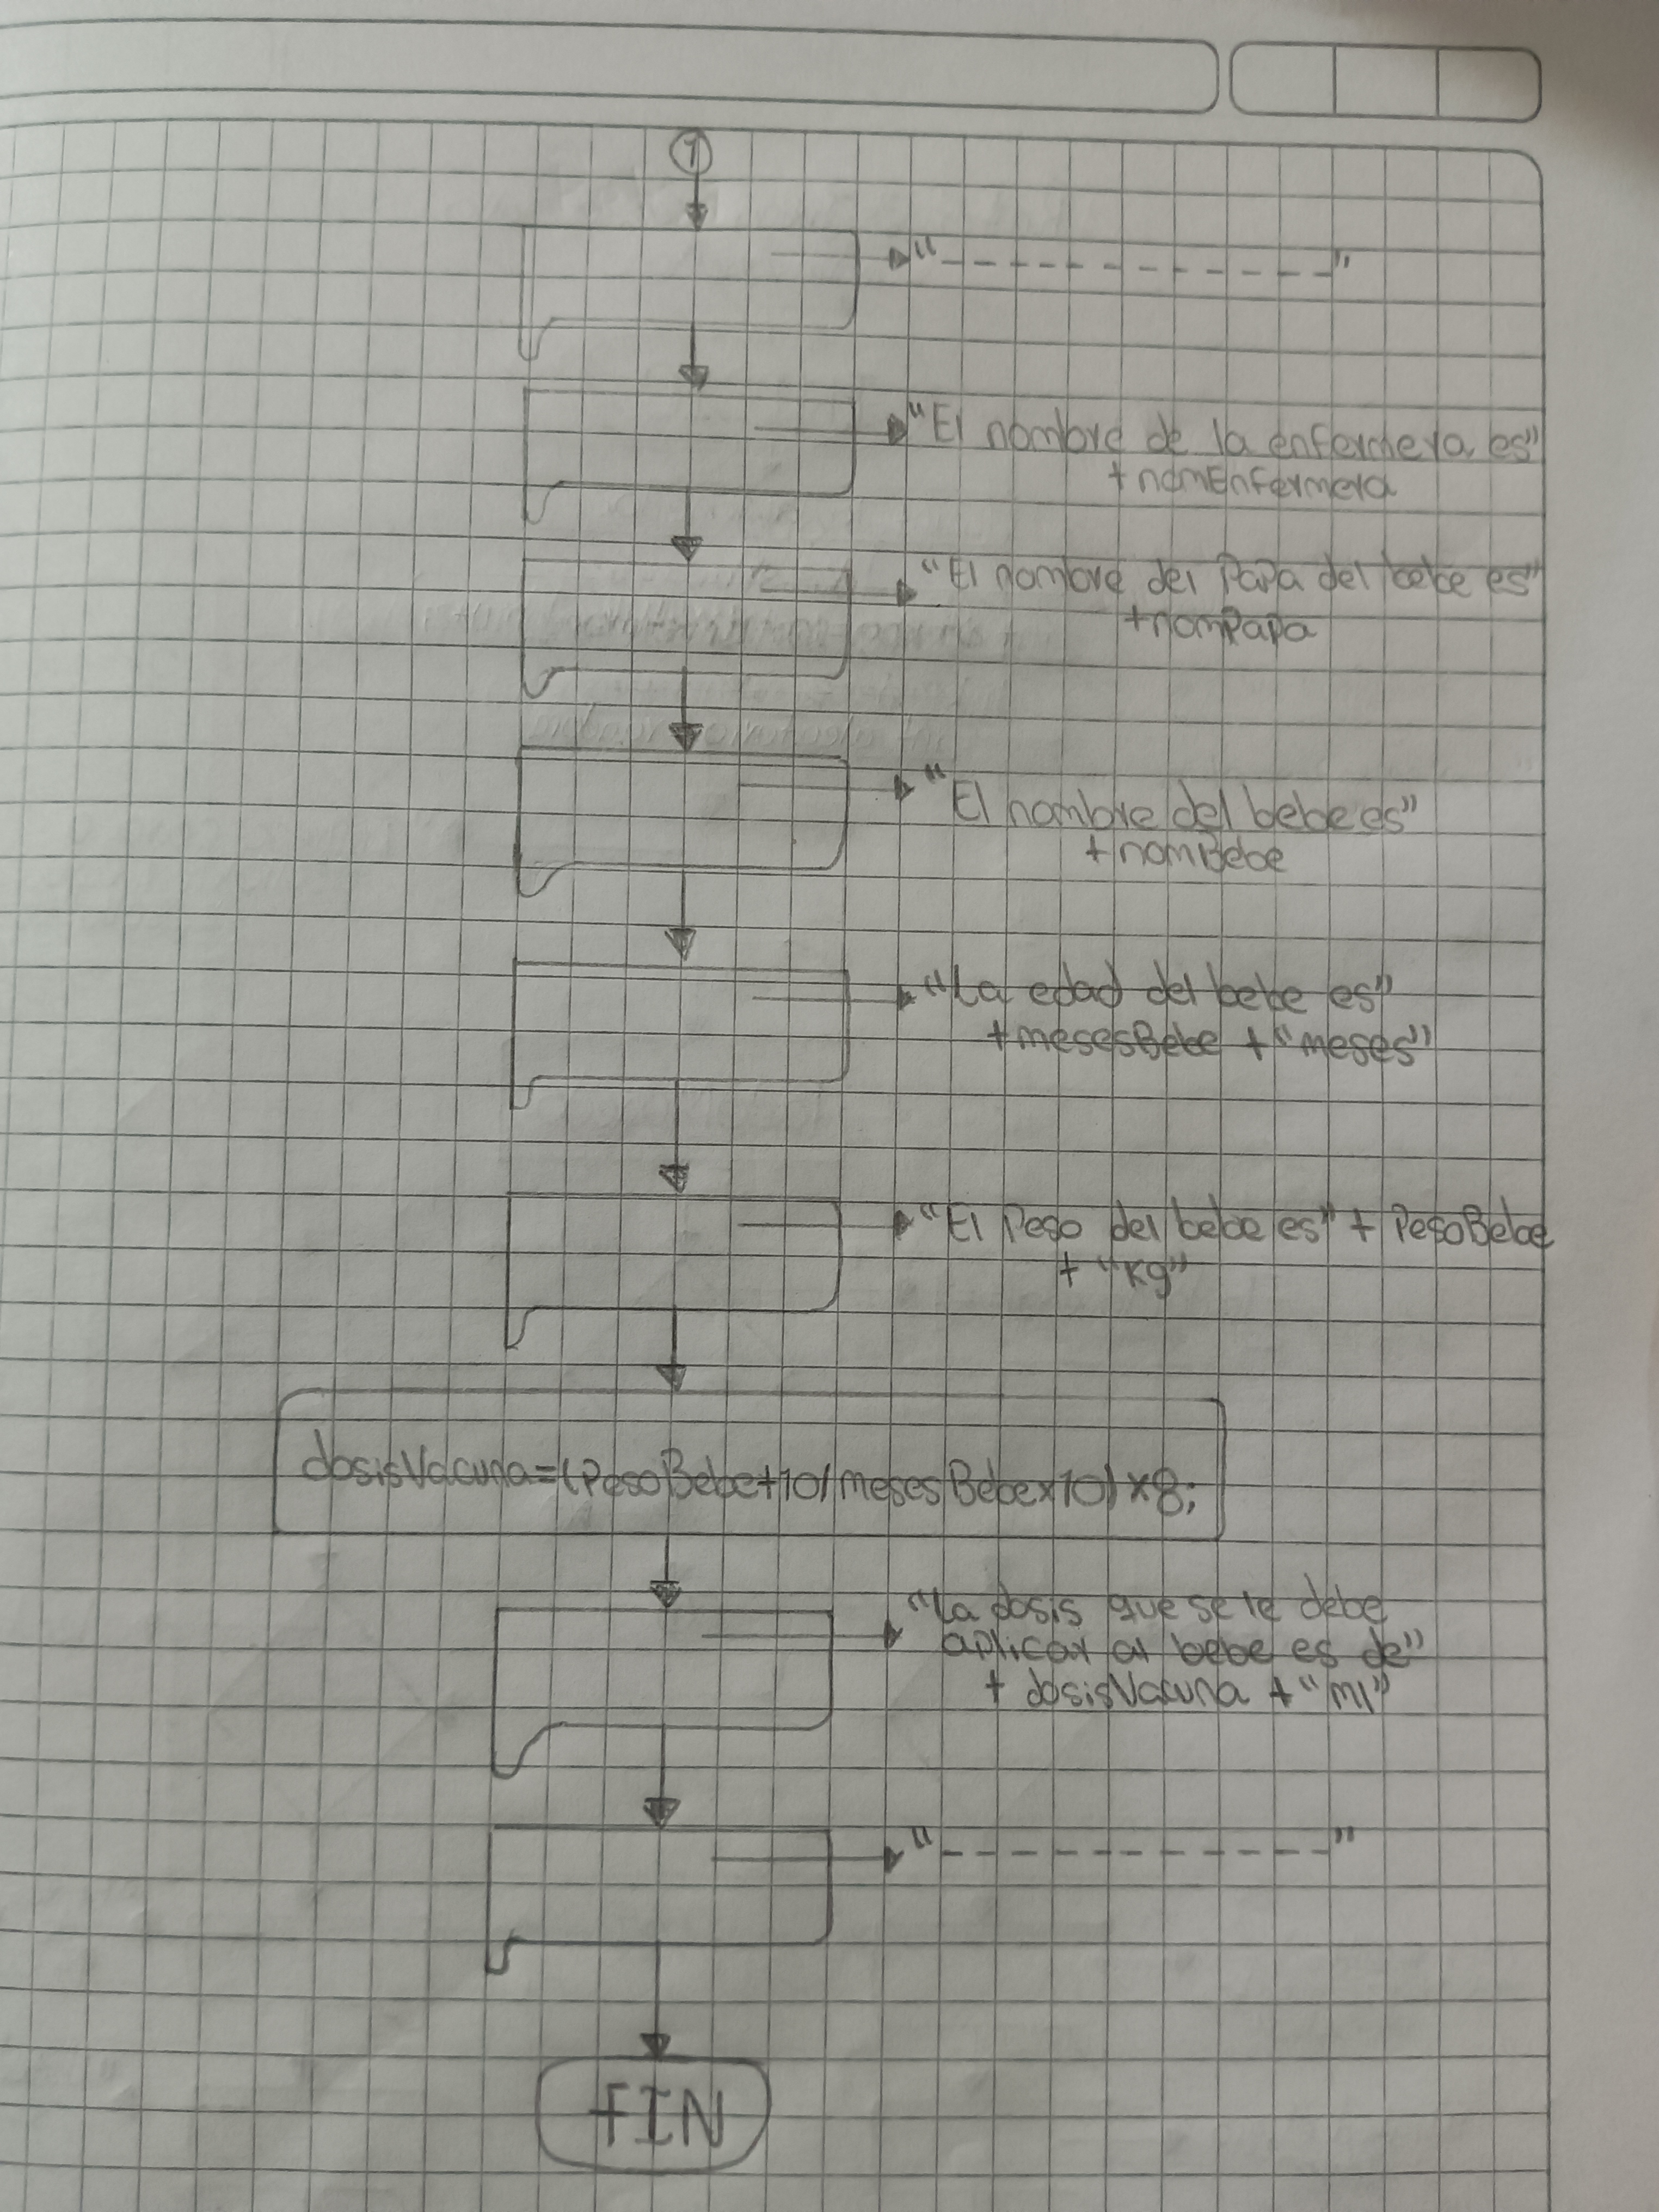 1
"- - - - - - - -"
"El nombre de la enfermera es"
+ nomEnfermera
"El nombre del PaPa del bebe es"
+nomPaPa
"El nombre del bebe es"
+ nomBebe
"La edad del bebe es"
+mesesBebe + "meses"
"El Peso del bebe es" + PesoBebe
+ "Kg"
dosisVacuna=(PesoBebe+10/mesesBebex10)x8;
"La dosis que se le debe
aplicar al bebe es de"
+ dosisVacuna + "ml"
"- - - - - - - -"
fIN